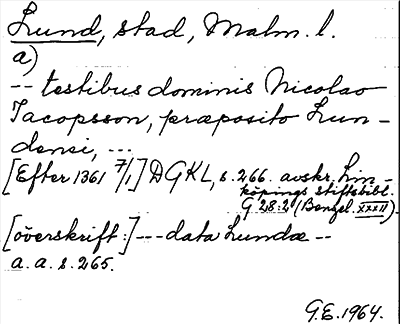 Lund, stad, Malm. l.
a)
-- testibus dominis Nicolao
Jacopsson, præposito Lun-
densi, ...
[Efter 1361 7/1] DGKL, s. 266. avskr. Lin-
köpings stiftsbibl.
G 28:2 (Benzel. XXXII).
[överskrift:] --- data Lundæ --
a. a. s. 265.
G.E. 1964.